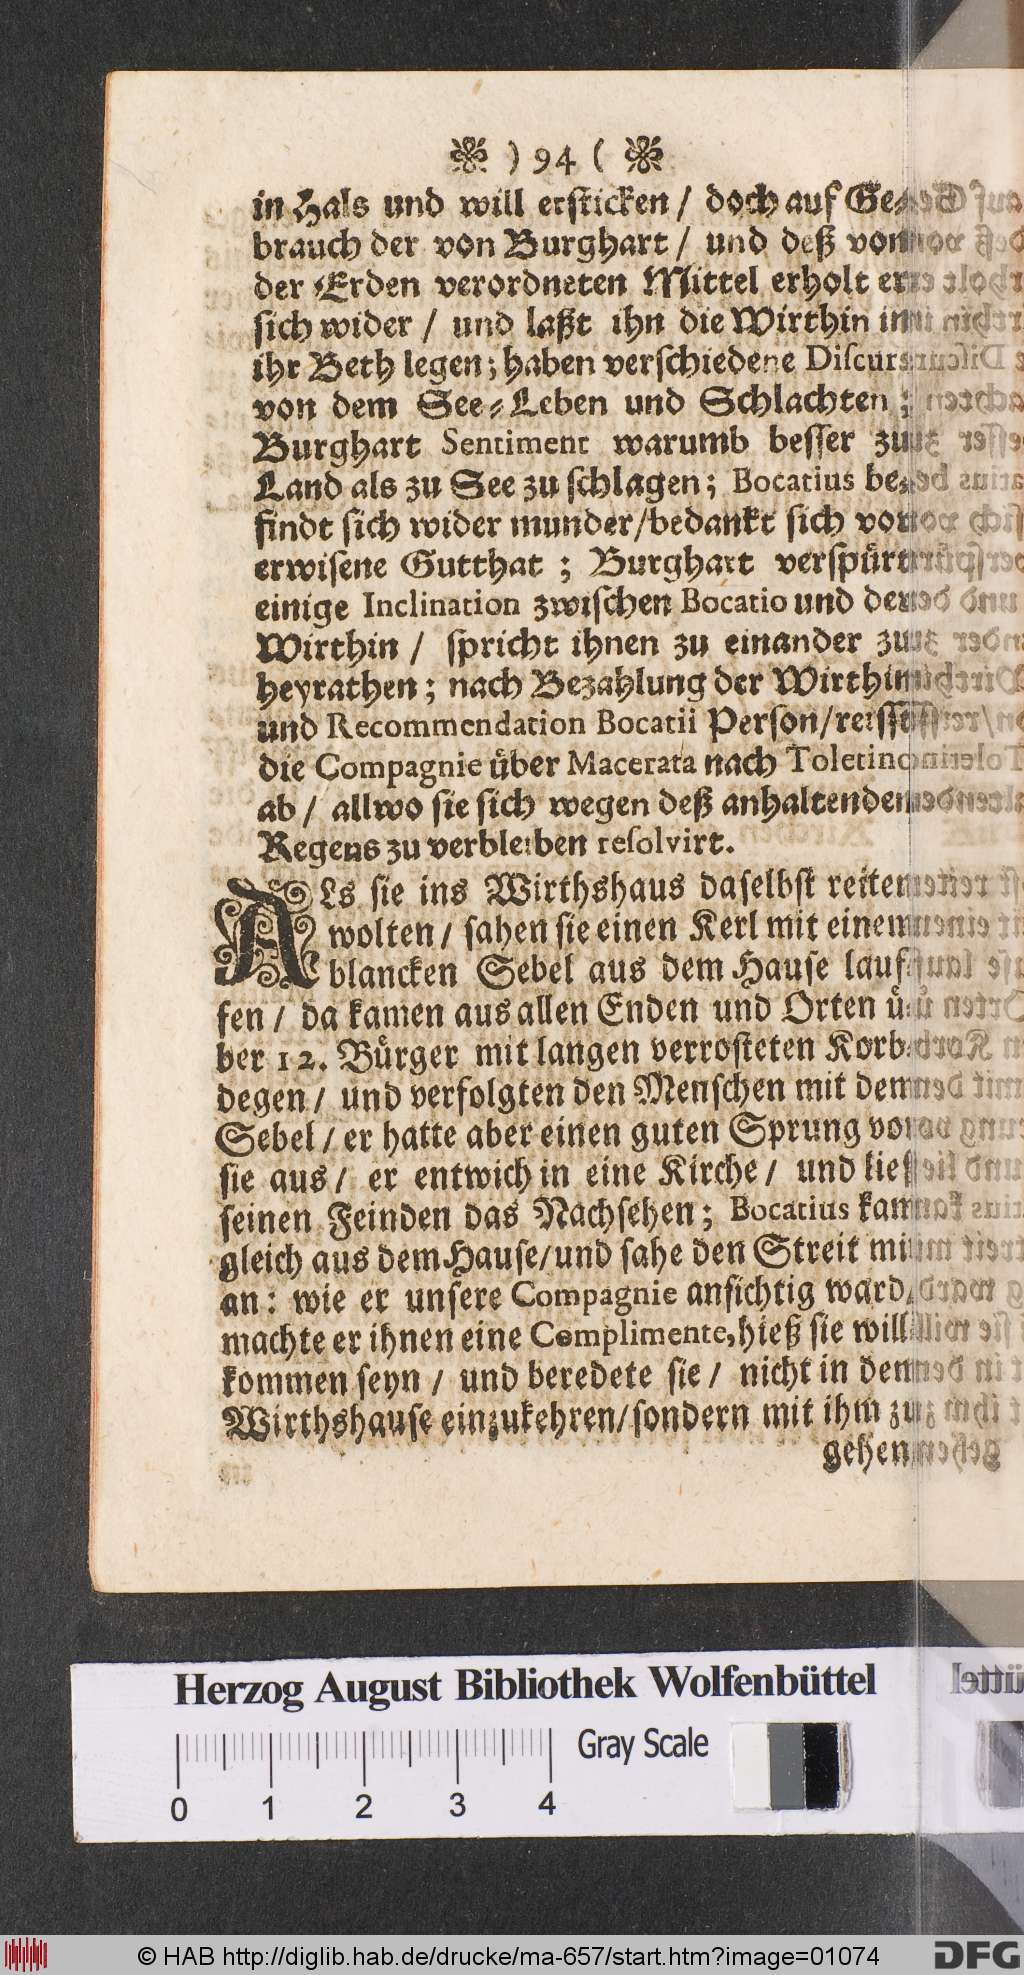 ) 94 (
in Hals und will ersticken / doch auf Ge-
brauch der von Burghart / und deß von
der Erden verordneten Mittel erholt er
sich wider / und laßt ihn die Wirthin in
ihr Beth legen; haben verschiedene Discurs
von dem See-Leben und Schlachten;
Burghart Sentiment warumb besser zu
Land als zu See zu schlagen; Bocatius be-
findt sich wider munder/bedankt sich vor
erwisene Gutthat ; Burghart verspürt
einige Inclination zwischen Bocatio und der
Wirthin / spricht ihnen zu einander zu
heyrathen; nach Bezahlung der Wirthin
und Recommendation Bocatii Person/reisst
die Compagnie über Macerata nach Toletino
ab / allwo sie sich wegen deß anhaltenden
Regens zu verbleiben resolvirt.
ALs sie ins Wirthshaus daselbst reiten
wolten / sahen sie einen Kerl mit einem
blancken Sebel aus dem Hause lauf-
fen / da kamen aus allen Enden und Orten ü-
ber 12. Bürger mit langen verrosteten Korb-
degen / und verfolgten den Menschen mit dem
Sebel / er hatte aber einen guten Sprung vor
sie aus / er entwich in eine Kirche / und ließ
seinen Feinden das Nachsehen; Bocatius kam
gleich aus dem Hause/und sahe den Streit mit
an: wie er unsere Compagnie ansichtig ward,
machte er ihnen eine Complimente,hieß sie will-
kommen seyn / und beredete sie / nicht in dem
Wirthshause einzukehren/sondern mit ihm zu
gehen
Herzog August Bibliothek Wolfenbüttel
Gray Scale
0 1 2 3 4
© HAB http://diglib.hab.de/drucke/ma-657/start.htm?image=01074
DFG